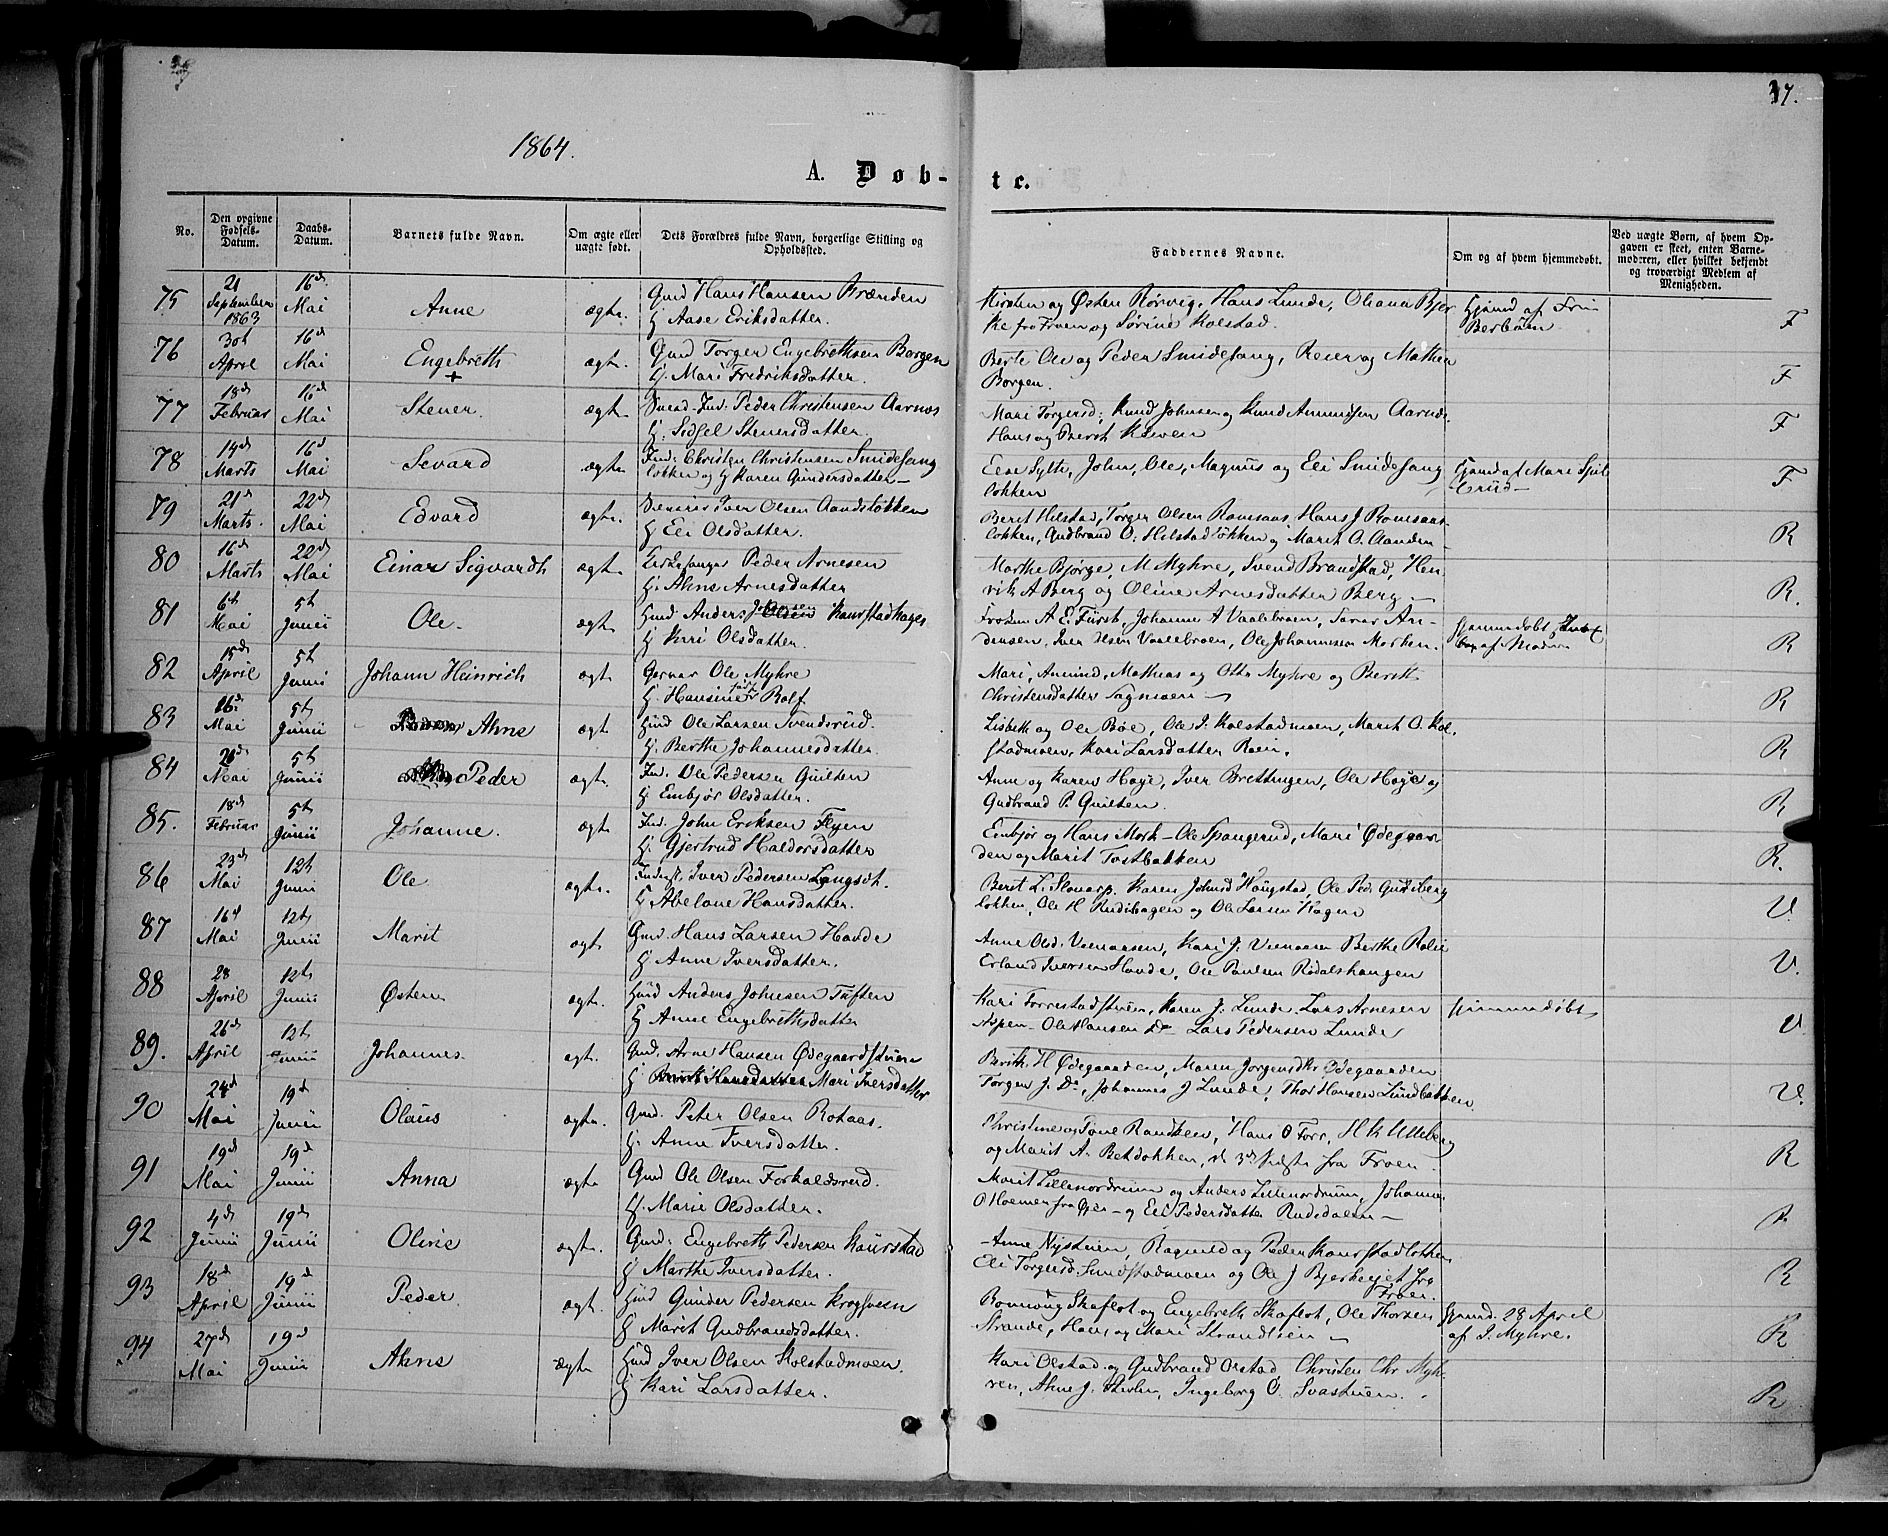 17.
1864.
A. Døb-te.
No.
Den opgivne Fødsels-Datum.
Daabs-Datum.
Barnets fulde Navn.
Om ægte eller uægte født.
Dets Forældres fulde Navn, borgerlige Stilling og Opholdssted.
Faddernes Navne.
Om og af hvem hjemmedøbt.
Ved uægte Børn, af hvem Opgaven er skeet, enten Barnemoderen, eller hvilket bekjendt og troværdigt Medlem af Menigheden.
75 21 September 1863 16de Mai Anne ægte. Gmd Hans Hansen Brænden
H Aase Eriksdatter.
Kirsten og Østen Rørvig, Hans Lunde, Oliana Bjer
ke fra Froen og Sørine Kolstad.
F
76 30te April 16de Mai Engebreth + ægte. Gmd Torger Engebrethsen Borgen
H. Mari Fredriksdatter.
Berte Ole og Peder Smidesang, Reier og Mathea
Borgen.
F
77 18de Februar 16de Mai Stener. ægte. Ind. Peder Christensen Aarnes
H. Sidsel Stenersdatter.
Mari Torgersd: Knud Johnsen og Knud Amundsen Aarnes
Hans og Berit
F
78 14de Marts 16de Mai Sevard ægte Ind. Christen Christensen Smidesang
løkken og H Karen Gundersdatter
Else Sylte, John, Ole, Magnus og Eli Smidesang
løkken
Hjemd af Mari
F
79 21de Marts. 22de Mai Edvard ægte. Iver Olsen Aandsløkken
H Eli Olsdatter.
Beret Hilstad, Torger Olsen Ramsaas, Hans J Romsaas
løkken, Gudbrand O. Hilstadløkken og Marit O. Aanden
R
80 16de Marts 22de Mai Einar Sigvardt ægte Kirkesanger Peder Arnesen
H. Ahne Arnesdatter
Marthe Bjørge, M Myhre, Svend Brandstad, Hen
rik A Berg og Oline Arnesdatter Berg
R.
81 6te Mai 5te Junii Ole. ægte Gmd. Anders Kaurstadhagen
H Kari Olsdatter.
Frøken A E. Fürst, Johanne A Vaalebroen,
Iver Olsen Vaalebroen, Ole Johannesen
Hjemmedøbt
af Moderen
R
82 15de April 5te Junii Johann Heinrich ægte Garver Ole Myhre
H. Hansine født Rolf
Mari, Amund, Mathias og Otto Myhre og Berit
Christensdatter Sagmoen
R
83 26 Mai 5te Junii Ahne ægte Hmd Ole Larsen Svendsrud.
H. Berthe Johannesdatter.
Lisbeth og Ole Bøe, Ole J. Kolstadmoen, Marit O. Kol
stadmoen, Kari Larsdatter Roen.
R
84 Mai 5te Junii Peder ægte. Ind. Ole Pedersen Quilten
H. Embjør Olsdatter.
Anne og Karen Hage, Iver Brettingen, Ole Hage og
Gudbrand P. Quilten.
R
85. 18de Februar 5te Junii Johanne. ægte Ind. John Eriksen Flyen
H. Gjertrud Haldorsdatter
Embjør og Hans Mork Ole Spangrud, Mari Ødegaar
den og Marit Tostbakken
R.
86 23de Mai 12te Junii Ole ægte. Iver Pedersen
H Abelone Hansdatter.
Beret L. Karen Johnsd Haugstad, Ole Ped: Gudsberg
løkken, Ole H Rudihagen og Ole Larsen Hagen
V.
87 16de Mai 12te Junii Marit ægte. Gmd. Hans Larsen Hovde
H. Anne Iversdatter.
Anne Olsd. Kari J. Berthe
Erland Iversen Hovde, Ole Paulsen
V.
88 28 April 12te Junii Østen ægte. Hmd Anders Johnsen Tuften
H Anne Engebrethsdatter
Kari Karen J. Lunde Lars Arnesen
Aspen Ole Hansen Do Lars Pedersen Lunde
Hjemmedøbt
V
89. 26de April 12te Junii Johannes. ægte. Gmd. Arne Hansen Ødegaardstuen
H Mari Iversdatter
Berith H Ødegaarden, Maren Jørgensdtr Ødegaarden
Torger J. Do, Johannes J Lunde, Thor Hansen Lundbakken
V.
90 24de Mai 19de Junii Olaus ægte. Gmd. Peter Olsen Rotaas.
H. Anne Iversdatter.
Christine og Tone Randklev, Hans O Forr, H K Ulleberg
og Marit A. Bekdokken, de 3de sidste fra Froen.
R
91 19de Mai 19de Junii Anna ægte Gmd Ole Olsen Forkalsrud.
H. Marie Olsdatter.
Marit Lillenordrum og Anders Lillenordrum, Johanne
og Eli Pedersdatter Rudedalen
R
92 4de Junii 19de Junii Oline ægte. Gmd: Engebreth Pedersen Kaurstad
H Marthe Iversdatter.
Anne Nystuen, Ragnild og Peder Kaurstadløkken
Eli Torgersd. Sundstadmoen og Ole J Bjerke fra
Froen.
R
93 18de April 19de Junii Peder ægte Hmd Gunder Pedersen Krogsveen
H Marit Gudbrandsdatter.
Ronnoug Skaflot og Engebreth Skaflot, Ole Thorsen
Strande, Hans og Mari Strandlien
Hjemd. 28 April
af J. Myhre.
R
94 27de Mai 19de Junii Ahne ægte Hmd Iver Olsen Kolstadmoen.
H Kari Larsdatter.
Kari Olstad og Gudbrand Olstad Christen Chr Myh
ren, Ahne J. Ingeborg O. Svastuen.
R